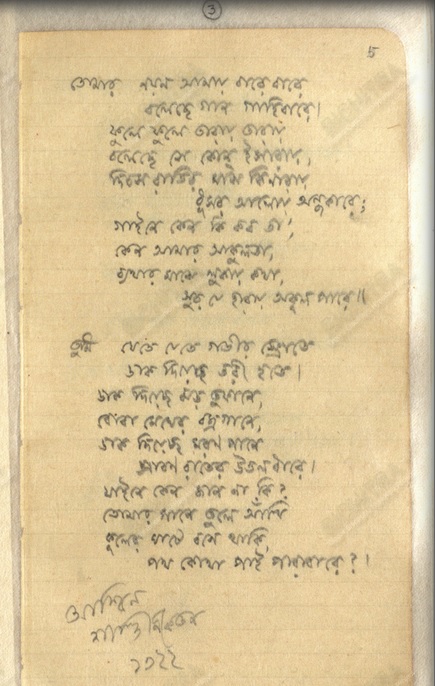 3
5
তোমার নয়ন আমায় বারে বারে
বলেছে গান গাহিবারে।
ফুলে ফুলে তারায় তারায়
বলেছে সে কোন্ ইসারায়,
দিবস রাতির মাঝ কিনারায়
ধূসর আলোয় অন্ধকারে;
গাইনে কেন কি কব তা,
কেন আমার আকুলতা,
ব্যথার মাঝে লুকায় কথা,
সুর যে হারায় অকূল পারে॥
তুমি যেতে যেতে গভীর স্রোতে
ডাক দিয়েছ তরী হতে।
ডাক দিয়েছ ঝড় তুফানে,
বোবা মেঘের বজ্রগানে,
ডাক দিয়েছ মরণ পানে
শ্রাবণ রাতের উতল ধারে।
যাইনে কেন জান না কি?
তোমার পানে তুলে আঁখি
কূলের ঘাটে বসে থাকি,
পথ কোথা পাই পারাবারে?।
আশ্বিন
শান্তিনিকেতন
১৩২২